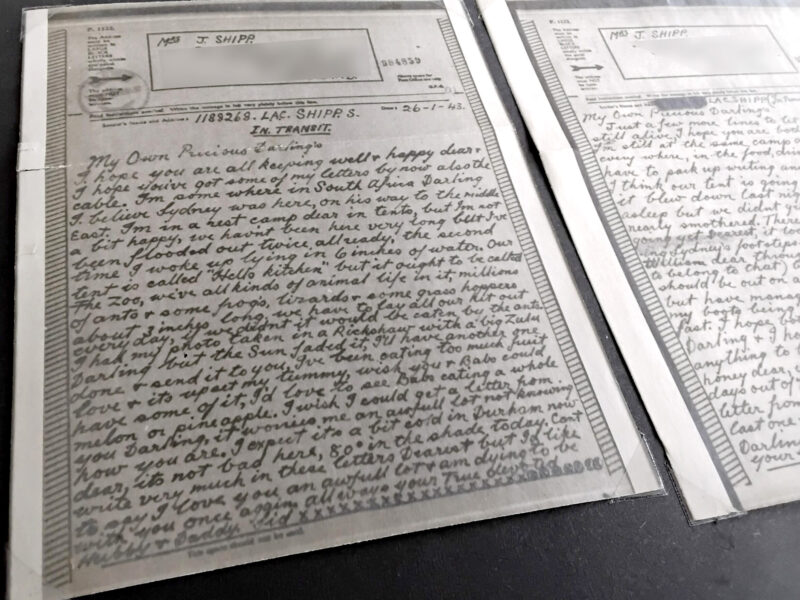 P. 1122.
The Address
must be
written in
LARGE
BLOCK
LETTERS
wholly within
this panel.
The address
must NOT be
MRS J. SHIPP
984859
Sender's Name and Address: 1189268. LAC. SHIPP. S.
Date: 26-1-43.
IN. TRANSIT.
My Own Precious Darling's
I hope you are all keeping well & happy dear &
I hope you've got some of my letters by now also the
cable. I'm some where in South Africa Darling
I believe Sydney was here, on his way to the middle
East. I'm in a rest camp dear in tents, but I'm not
a bit happy, we havnt been here very long but I've
been flooded out twice, allready, the second
time I woke up lying in 6 inches of water. Our
tent is called "Hells kitchen" but it ought to be called
The Zoo, we've all kinds of animal life in it, millions
of ants & some frogs, lizards & some grass hoppers
about 3 inches long, we have to lay all our kit out
every day, if we didn't it would be eaten by the ants.
I had my photo taken in a Rickshaw with a big Zulu
Darling but the Sun faded it, I'll have another one
done & send it to you, I've been eating too much fruit
love & its upset my tummy, wish you & Babs could
have some of it, I'd love to see Babs eating a whole
melon or pineapple. I wish I could get a letter from
you Darling, it worries me an awfull lot not knowing
how you are. I expect its a bit cold in Durham now
dear, its not bad here, 80° in the shade today. Cant
write very much in these letters Dearest but I'd like
to say I love you an awfull lot & am dying to be
with you once again. Allways your True
Hubby & Daddy Sid xxxxxxxxxxxxx
This space should not be used.
P. 1122.
The Address
must be
MRS J. SHIPP.
LAC. SHIPP.
My Own Precious Darling's
Just a few more lines to let
I'm still at the same camp
every where, in the food,
have to pack up writing and
I think our tent is going
it blew down last
asleep but we didn't
nearly smothered. There
going yet Dearest, it
Sydney's footsteps
dear through
to belong to that)
should be out on
but have manage
my boots being
fast. I hope bo
Darling & I ho
anything to
honey dear,
days out of
letter from
last one
Darling
your